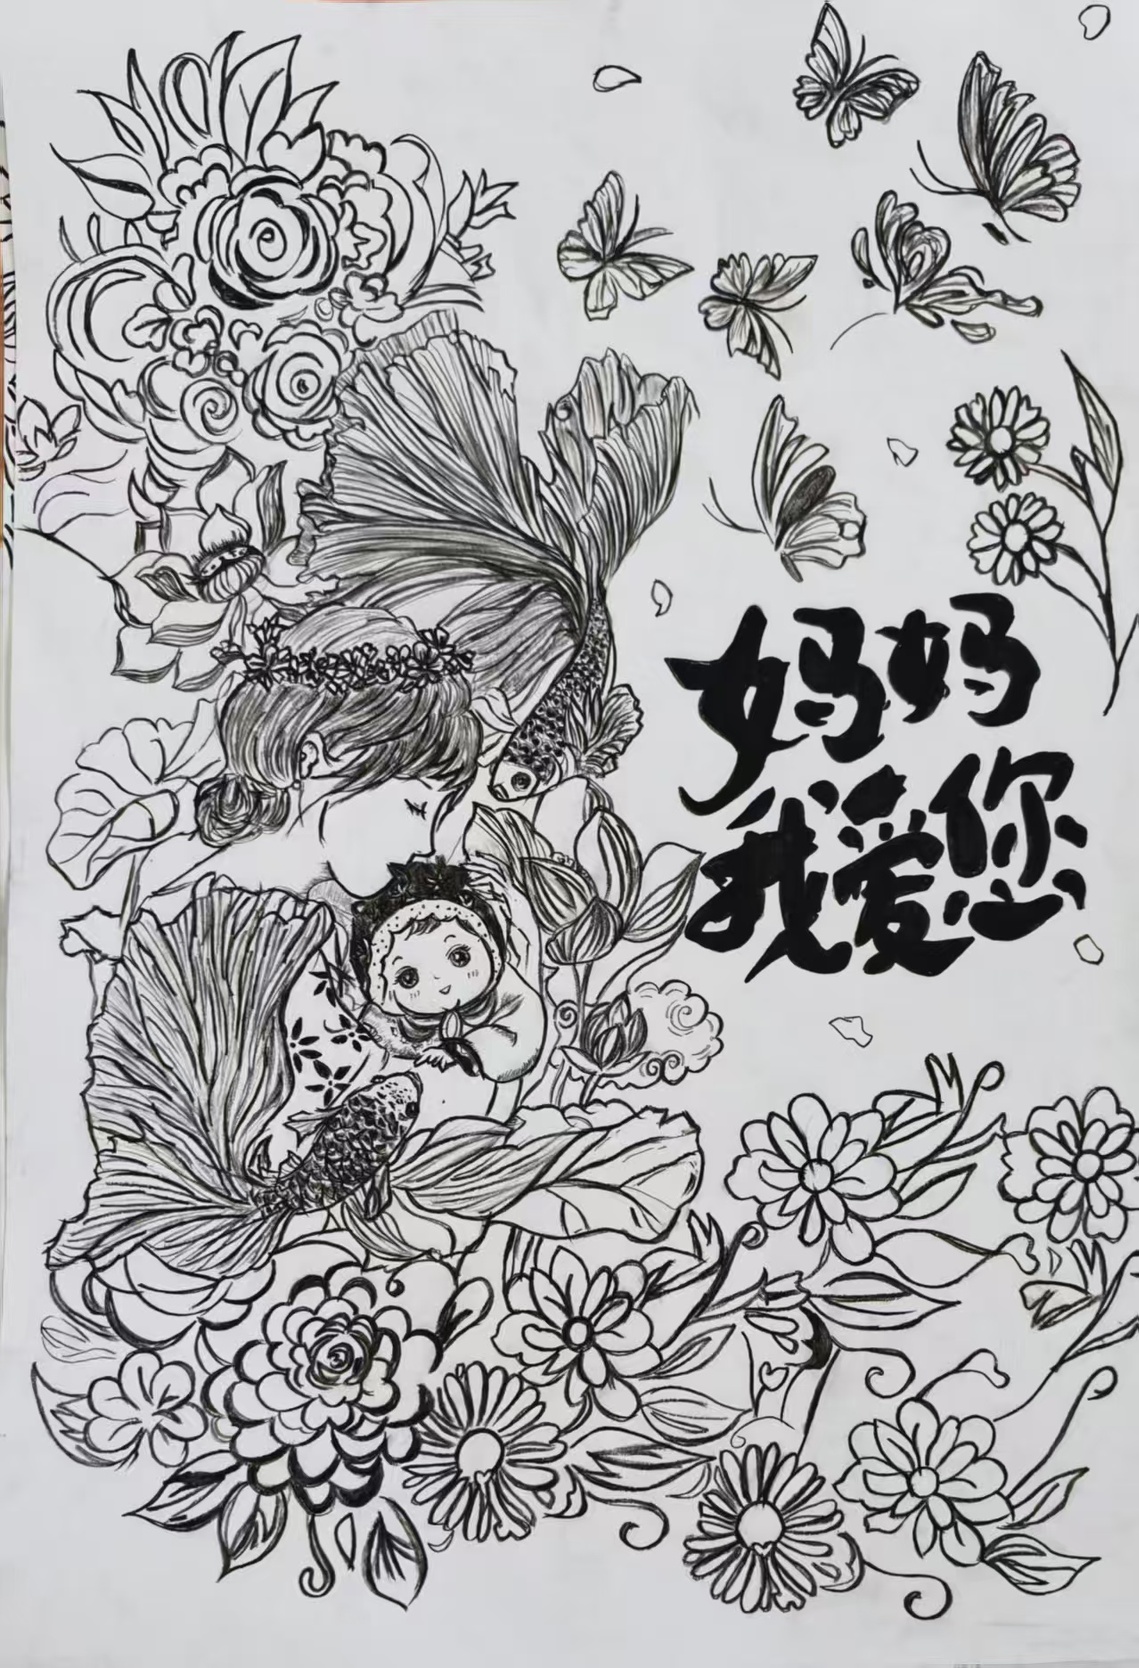 妈妈
我爱您